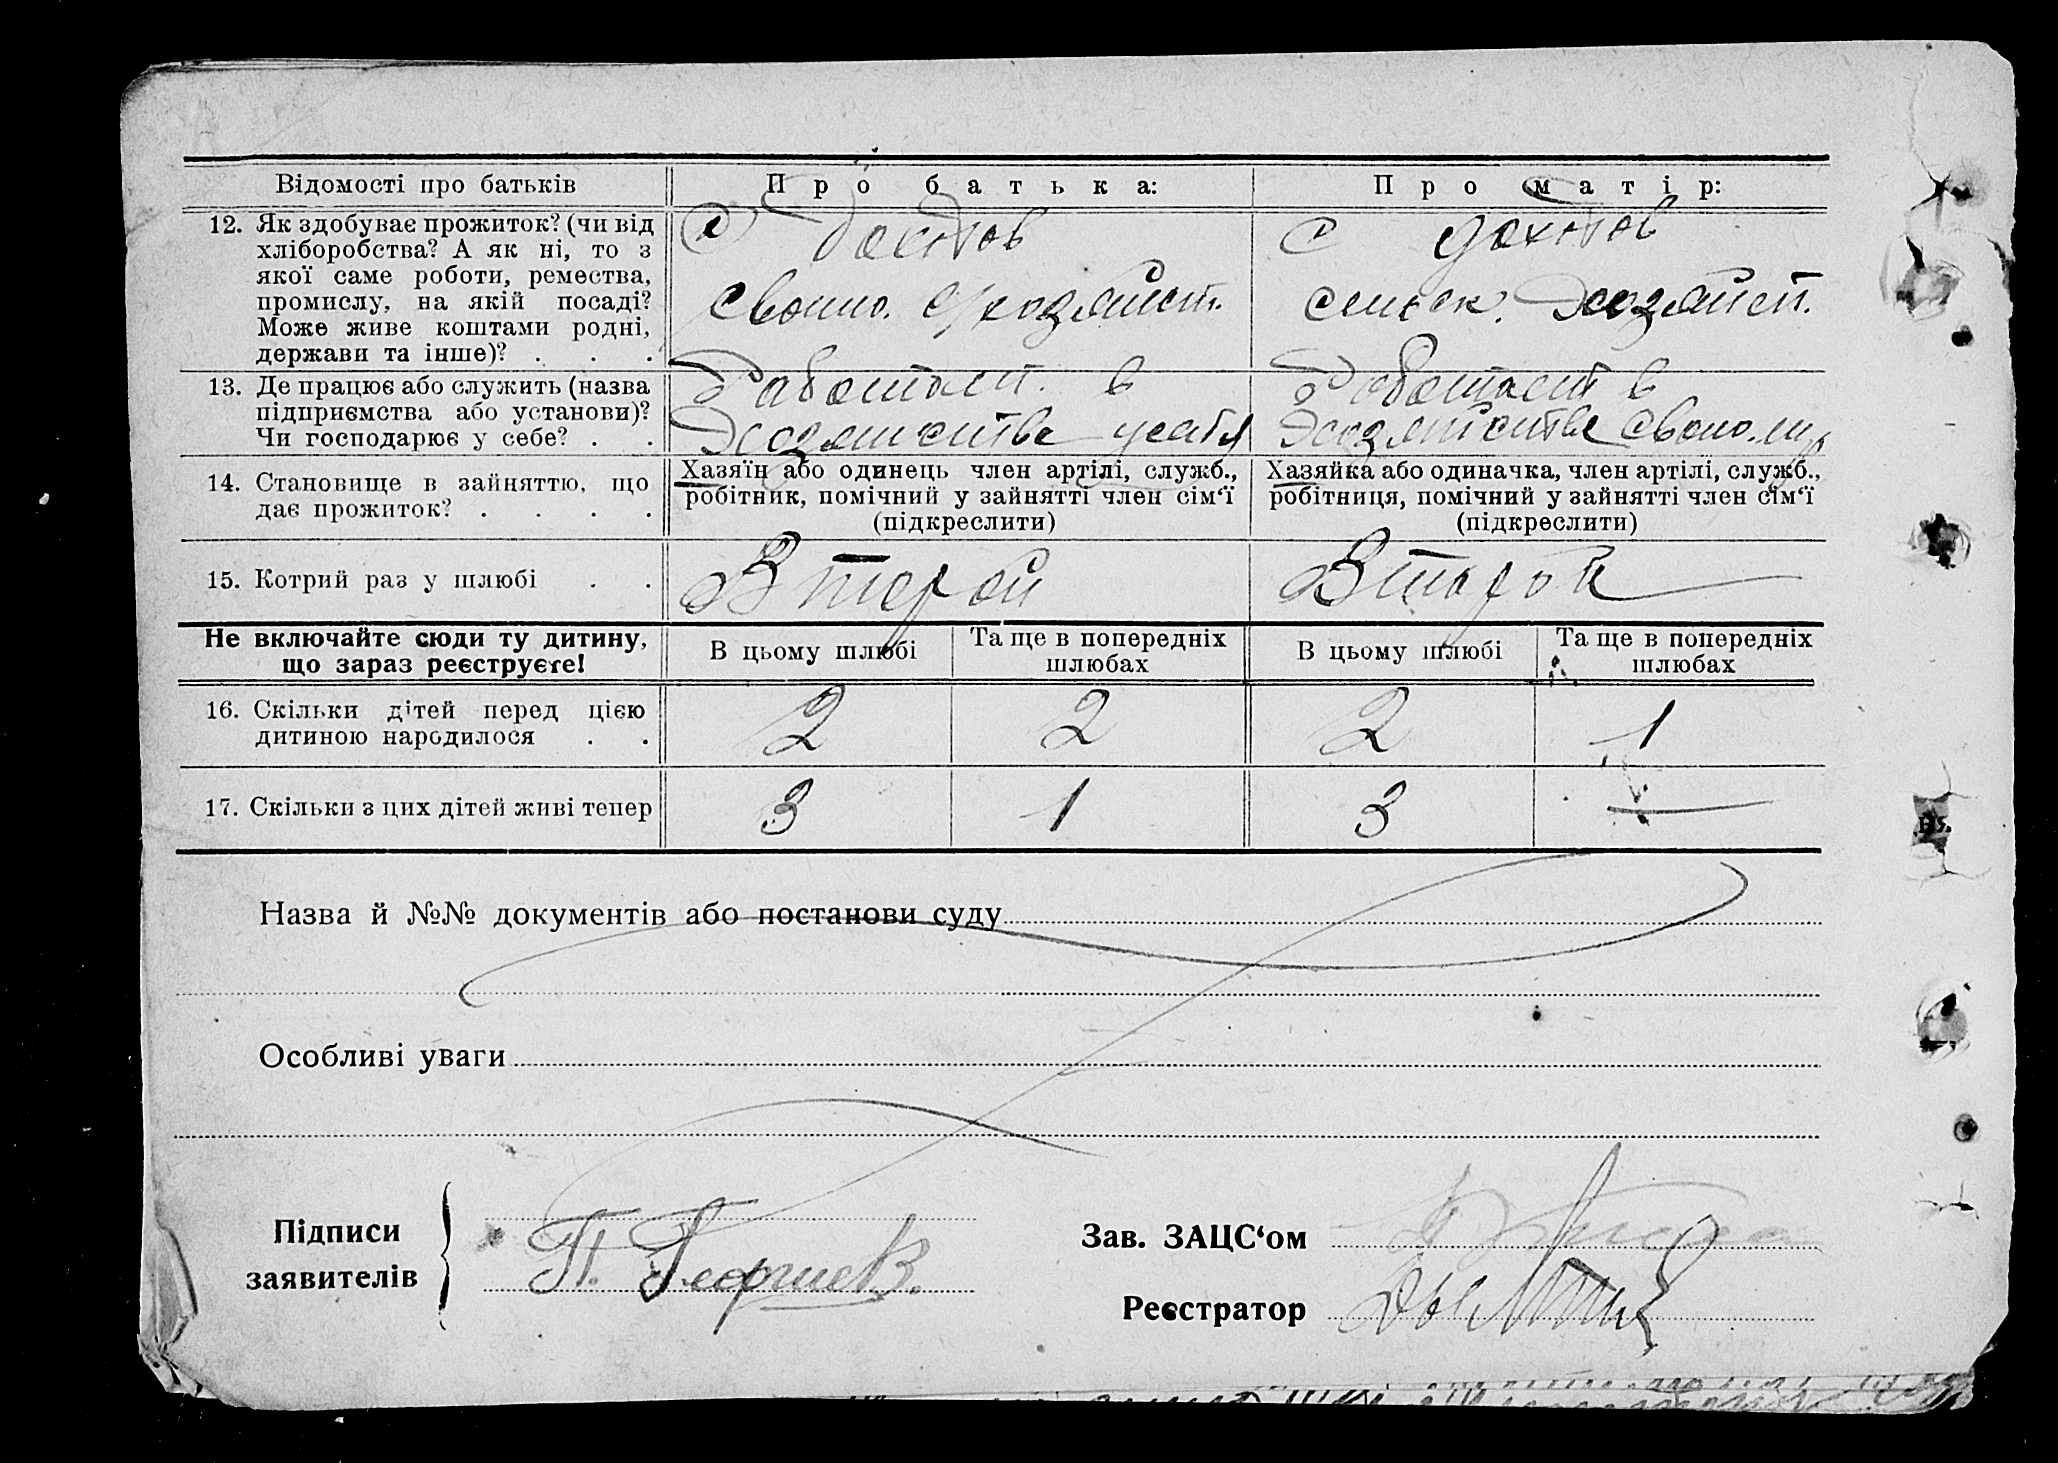 Відомості про батьків
Про батька:
Про матір:
12. Як здобуває прожиток? (чи від
хліборобства? А як ні, то з
якої саме роботи, ремества,
промислу, на якій посаді?
Може живе коштами родні,
держави та інше)? . . .
С
С доходов
сельск. Хозяйст.
13. Де працює або служить (назва
підприємства або установи)?
Чи господарює у себе? . .
Работает. в
Хозяйстве у себя
Работает в
Хозяйстве
14. Становище в зайняттю, що
дає прожиток? . . . .
Хазяїн або одинець член артілі, служб.,
робітник, помічний у зайнятті член сім‘ї
(підкреслити)
Хазяйка або одиначка, член артілі, служб.,
робітниця, помічний у зайнятті член сім‘ї
(підкреслити)
15. Котрий раз у шлюбі . .
Второй
Второй
Не включайте сюди ту дитину,
що зараз реєструєте!
В цьому шлюбі
Та ще в попередніх
шлюбах
В цьому шлюбі
Та ще в попередніх
шлюбах
16. Скільки дітей перед цією
дитиною народилося . .
2
2
2
1
17. Скільки з цих дітей живі тепер
3
1
3
—
Назва й №№ документів або постанови суду
Особливі уваги
Підписи
заявителів
П. Георгиев.
Зав. ЗАЦС‘ом
Реєстратор